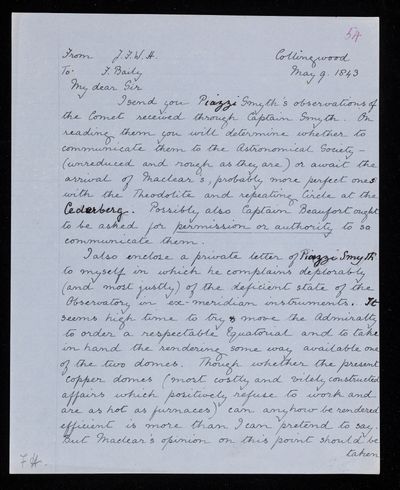 5A
From J.F.W.H. Collingwood
To F. Baily May 9. 1843
My dear Sir
I send you Piazzi Smyth's observations of
the Comet received through Captain Smyth. On
reading them you will determine whether to
communicate them to the Astronomical Society -
(unreduced and rough as they are) or await the
arrival of Maclear's, probably more perfect ones
with the Theodolite and repeating Circle at the
Cederberg. Possibly also Captain Beaufort ought
to be asked for permission or authority to so
communicate them.
I also enclose a private letter of Piazzi Smyth
to myself in which he complains deplorably
(and most justly) of the deficient state of the
Observatory in ex-meridian instruments. It
seems high time to try & move the Admiralty
to order a respectable Equatorial and to take
in hand the rendering some way available one
of the two domes. Though whether the present
copper domes (most costly and vilely constructed
affairs which positively refuse to work and
are as hot as furnaces) can anyhow be rendered
efficient is more than I can pretend to say.
But Maclear's opinion on this point should be
taken